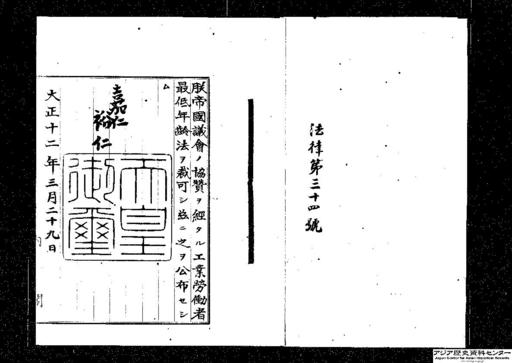 法律第三十四號
朕帝國議會ノ協贊ヲ經タル工業勞働者
最低年齡法ヲ裁可シ茲ニ之ヲ公布セシ
ム
嘉仁
裕仁
天皇
御璽
大正十二年三月二十九日
アジア歴史資料センター
Japan Center for Asian Historical Records